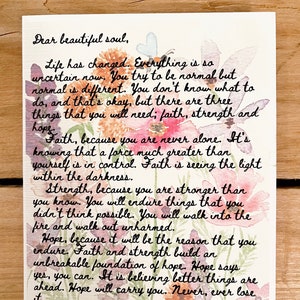 Dear beautiful soul,
Life has changed. Everything is so
uncertain now. You try to be normal but
normal is different. You don't know what to
do, and that's okay, but there are three
things that you will need; faith, strength and
hope.
Faith, because you are never alone. It's
knowing that a force much greater than
yourself is in control. Faith is seeing the light
within the darkness.
Strength, because you are stronger than
you know. You will endure things that you
didn't think possible. You will walk into the
fire and walk out unharmed.
Hope, because it will be the reason that you
endure. Faith and strength build an
unbreakable foundation of hope. Hope says
yes, you can. It is believing better things are
ahead. Hope will carry you. Never, ever lose